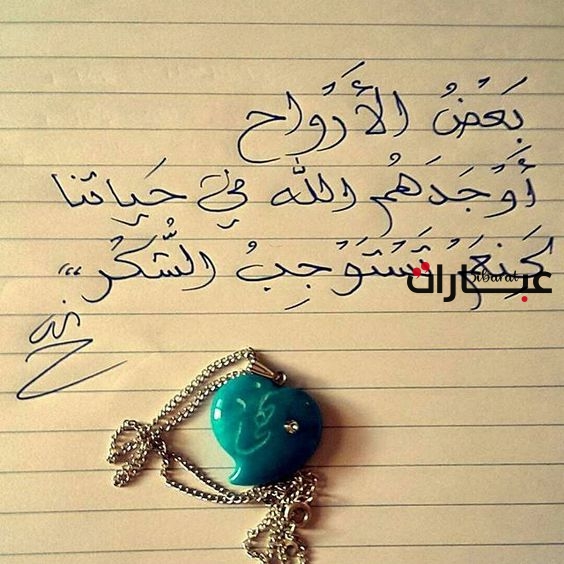 بَعْضُ الأَرْوَاح
أَوْجَدَهُم الله في حَياتنا
كَنِعَمٍ تَسْتَوْجِبُ الشُّكْرُ ،،
عبارات
Sibarat